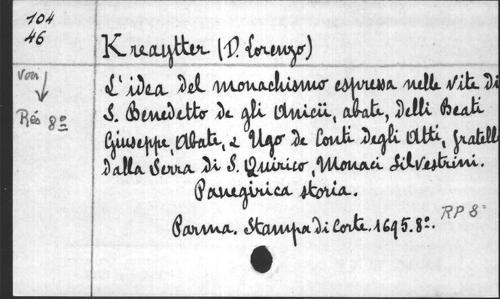 104
46
Kreaytter (D. Lorenzo)
voir
Rés 8º
L'idea del monachismo espressa nelle vite di
S. Benedetto de gli Anicii, abate, delli Beati
Giuseppe, Abate, e Ugo de Conti degli Atti, fratelli
dalla Serra di S. Quirico, Monaci Silvestrini.
Panegirica storia.
Parma. Stampa di Corte. 1695. 8º.
RP 8º